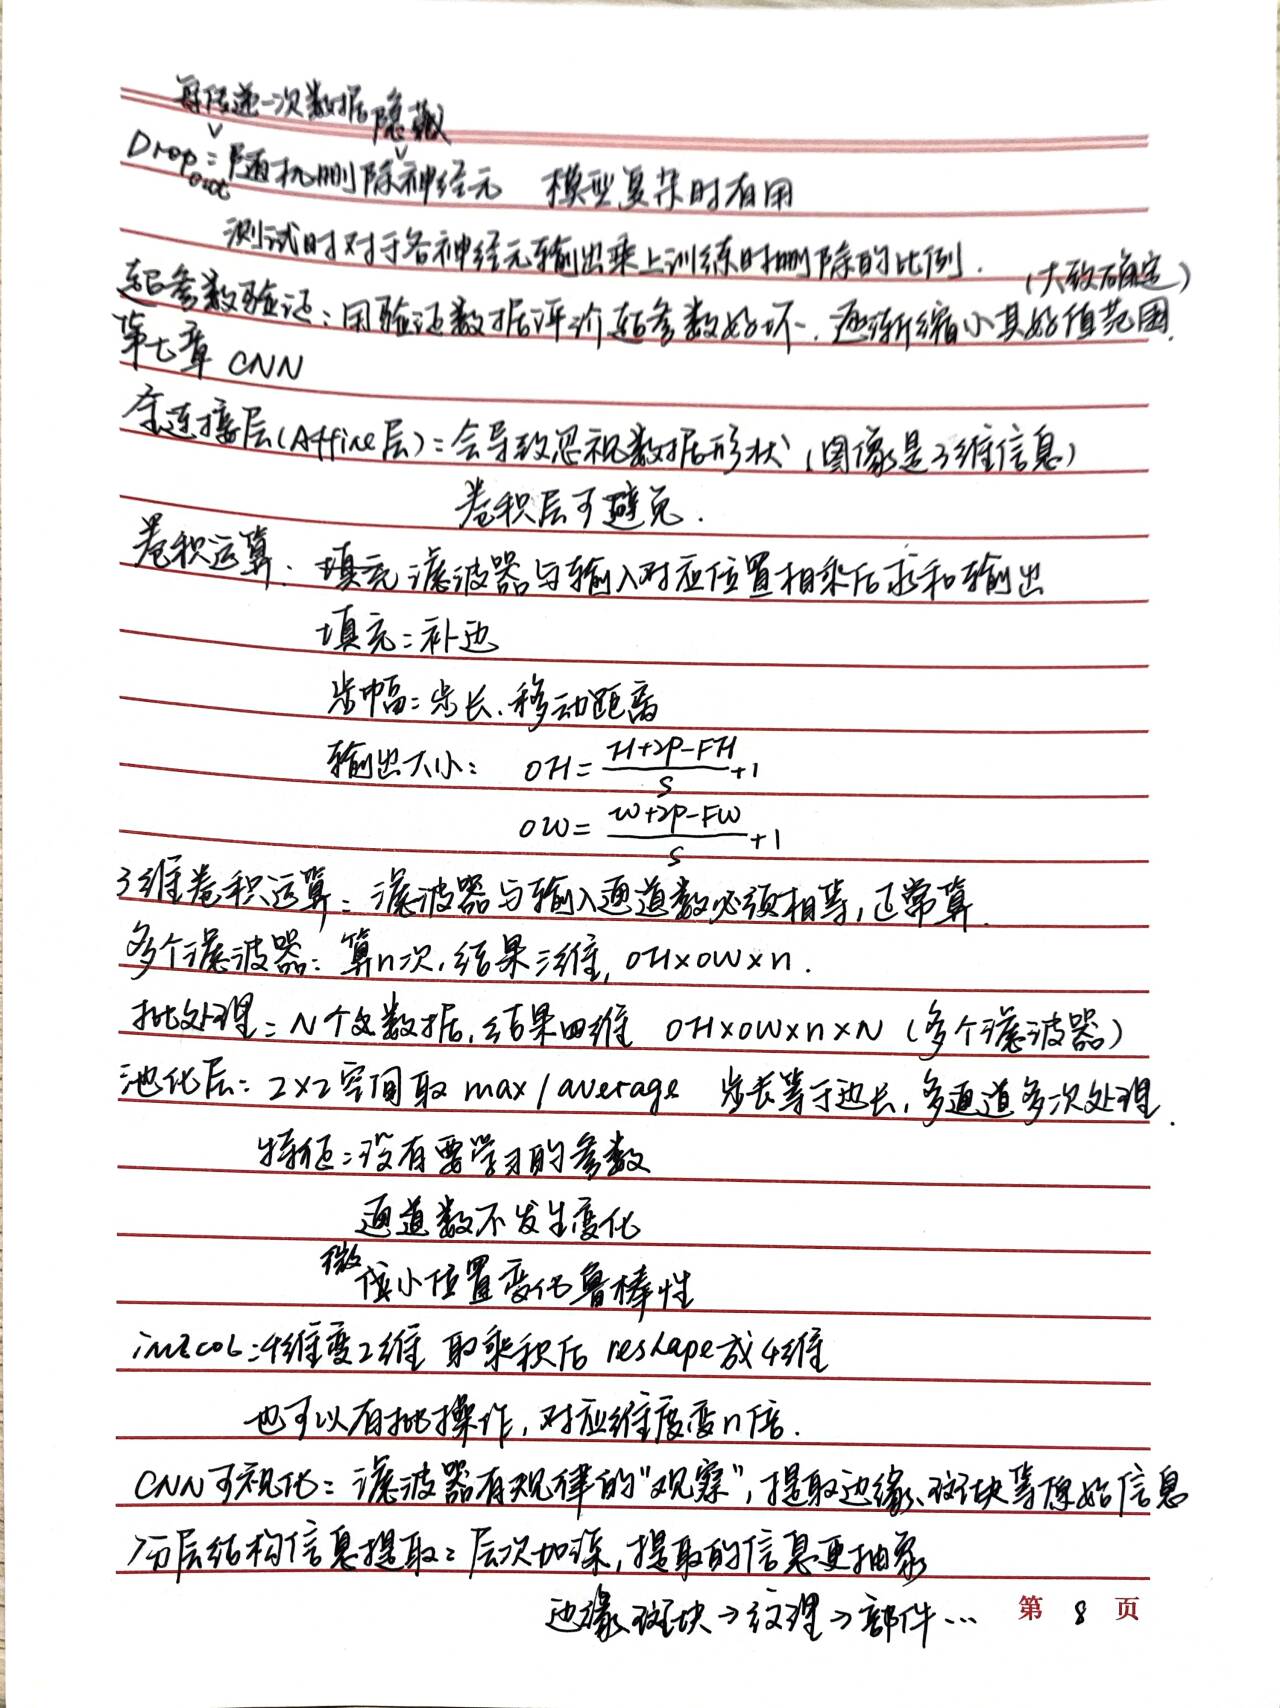 每传递一次数据 隐藏
Dropout：随机删除神经元 模型复杂时有用
测试时对于各神经元输出乘上训练时删除的比例.
(大致确定)
超参数验证：用验证数据评价超参数好坏. 逐渐缩小其好值范围.
第七章 CNN
全连接层(Affine层)：会导致忽视数据形状(图像是3维信息)
卷积层可避免.
卷积运算：填充 滤波器与输入对应位置相乘后求和输出
填充：补边
步幅：步长、移动距离
输出大小： OH = \frac{H+2P-FH}{S}+1
OW = \frac{W+2P-FW}{S}+1
3维卷积运算：滤波器与输入通道数必须相等，正常算.
多个滤波器：算n次，结果三维，OH×OW×n.
批处理：N个数据，结果四维 OH×OW×n×N (多个滤波器)
池化层：2×2空间取max/average 步长等于边长，多通道多次处理.
特征：没有要学习的参数
通道数不发生变化
微小位置变化鲁棒性
im2col：4维变2维 取乘积后 reshape成4维
也可以有批操作，对应维度变n倍.
CNN可视化：滤波器有规律的“观察”，提取边缘、斑块等原始信息
分层结构信息提取：层次加深，提取的信息更抽象
边缘、斑块→纹理→部件…
第 8 页